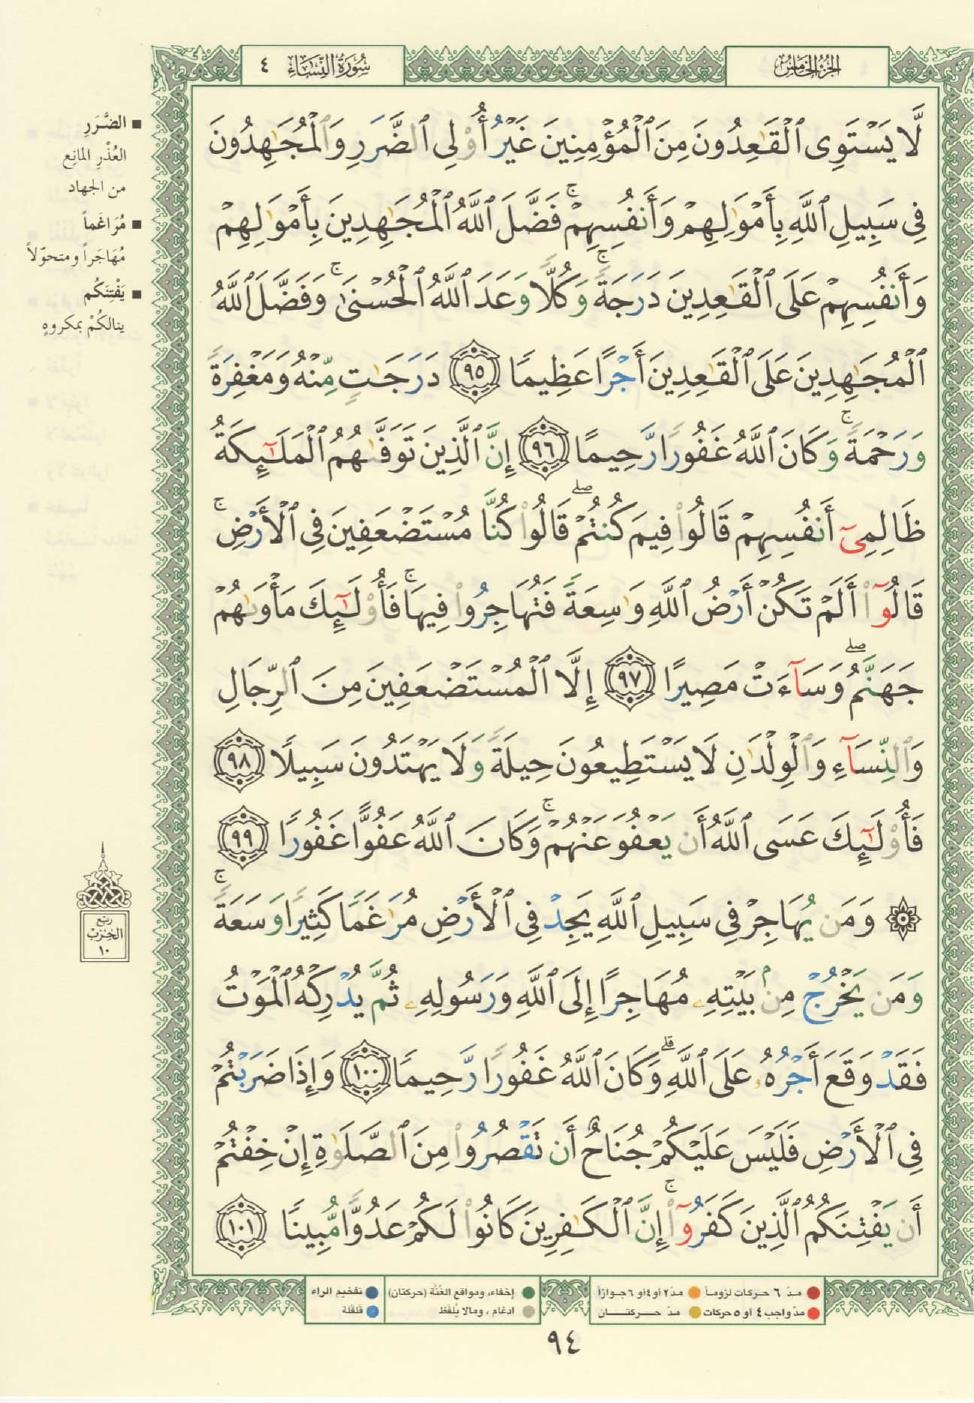 الجزء الخامس
سورة النساء ٤
لَّا يَسْتَوِى ٱلْقَٰعِدُونَ مِنَ ٱلْمُؤْمِنِينَ غَيْرُ أُو۟لِى ٱلضَّرَرِ وَٱلْمُجَٰهِدُونَ
فِى سَبِيلِ ٱللَّهِ بِأَمْوَٰلِهِمْ وَأَنفُسِهِمْ ۚ فَضَّلَ ٱللَّهُ ٱلْمُجَٰهِدِينَ بِأَمْوَٰلِهِمْ
وَأَنفُسِهِمْ عَلَى ٱلْقَٰعِدِينَ دَرَجَةً ۚ وَكُلًّا وَعَدَ ٱللَّهُ ٱلْحُسْنَىٰ ۚ وَفَضَّلَ ٱللَّهُ
ٱلْمُجَٰهِدِينَ عَلَى ٱلْقَٰعِدِينَ أَجْرًا عَظِيمًا ٩٥ دَرَجَٰتٍ مِّنْهُ وَمَغْفِرَةً
وَرَحْمَةً ۚ وَكَانَ ٱللَّهُ غَفُورًا رَّحِيمًا ٩٦ إِنَّ ٱلَّذِينَ تَوَفَّىٰهُمُ ٱلْمَلَٰٓئِكَةُ
ظَالِمِىٓ أَنفُسِهِمْ قَالُوا۟ فِيمَ كُنتُمْ ۖ قَالُوا۟ كُنَّا مُسْتَضْعَفِينَ فِى ٱلْأَرْضِ ۚ
قَالُوٓا۟ أَلَمْ تَكُنْ أَرْضُ ٱللَّهِ وَٰسِعَةً فَتُهَاجِرُوا۟ فِيهَا ۚ فَأُو۟لَٰٓئِكَ مَأْوَىٰهُمْ
جَهَنَّمُ ۖ وَسَآءَتْ مَصِيرًا ٩٧ إِلَّا ٱلْمُسْتَضْعَفِينَ مِنَ ٱلرِّجَالِ
وَٱلنِّسَآءِ وَٱلْوِلْدَٰنِ لَا يَسْتَطِيعُونَ حِيلَةً وَلَا يَهْتَدُونَ سَبِيلًا ٩٨
فَأُو۟لَٰٓئِكَ عَسَى ٱللَّهُ أَن يَعْفُوَ عَنْهُمْ ۚ وَكَانَ ٱللَّهُ عَفُوًّا غَفُورًا ٩٩
۞ وَمَن يُهَاجِرْ فِى سَبِيلِ ٱللَّهِ يَجِدْ فِى ٱلْأَرْضِ مُرَٰغَمًا كَثِيرًا وَسَعَةً ۚ
وَمَن يَخْرُجْ مِنۢ بَيْتِهِۦ مُهَاجِرًا إِلَى ٱللَّهِ وَرَسُولِهِۦ ثُمَّ يُدْرِكْهُ ٱلْمَوْتُ
فَقَدْ وَقَعَ أَجْرُهُۥ عَلَى ٱللَّهِ ۗ وَكَانَ ٱللَّهُ غَفُورًا رَّحِيمًا ١٠٠ وَإِذَا ضَرَبْتُمْ
فِى ٱلْأَرْضِ فَلَيْسَ عَلَيْكُمْ جُنَاحٌ أَن تَقْصُرُوا۟ مِنَ ٱلصَّلَوٰةِ إِنْ خِفْتُمْ
أَن يَفْتِنَكُمُ ٱلَّذِينَ كَفَرُوٓا۟ ۚ إِنَّ ٱلْكَٰفِرِينَ كَانُوا۟ لَكُمْ عَدُوًّا مُّبِينًا ١٠١
■ الضَّرَرِ
العُذْرِ المانِعِ
من الجهاد
■ مُرَاغَماً
مُهَاجَراً ومتحوّلاً
■ يَفْتِنَكُم
ينالكُمْ بمكروهٍ
ربع
الحزب
١٠
مدّ ٦ حركات لزوماً ● مدّ ٢ أو ٤ أو ٦ جوازاً
مدّ واجب ٤ أو ٥ حركات ● مدّ حركتان
إخفاء، ومواقع الغُنَّة (حركتان)
ادغام، ومالا يُلفَظ
تفخيم الراء
قلقلة
٩٤